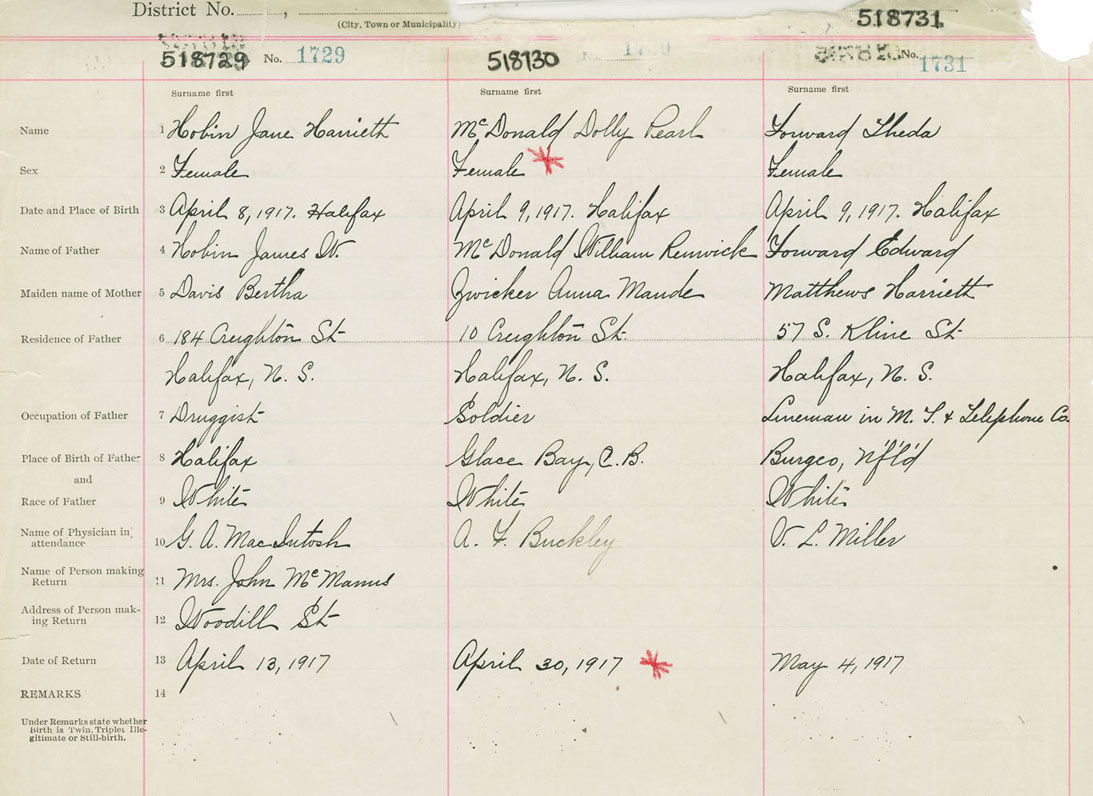 District No.
(City, Town or Municipality)
518731
518729 No. 1729
518730 No. 1730
No. 1731
Surname first Surname first Surname first
Name 1 Hobin Jane Harrieth McDonald Dolly Pearl Forward Theda
Sex 2 Female Female Female
Date and Place of Birth 3 April 8, 1917. Halifax April 9, 1917. Halifax April 9, 1917. Halifax
Name of Father 4 Hobin James W. McDonald William Renwick Forward Edward
Maiden name of Mother 5 Davis Bertha Zwicker Anna Maude Matthews Harrieth
Residence of Father 6 184 Creighton St 10 Creighton St. 57 S. Kline St
Halifax, N. S. Halifax, N. S. Halifax, N. S.
Occupation of Father 7 Druggist Soldier Lineman in M. T. & Telephone Co.
Place of Birth of Father 8 Halifax Glace Bay, C. B. Burgeo, Nf'l'd
and
Race of Father 9 White White White
Name of Physician in attendance 10 G. A. MacIntosh A. F. Buckley V. L. Miller
Name of Person making Return 11 Mrs. John McManus
Address of Person making Return 12 Woodill St
Date of Return 13 April 13, 1917 April 30, 1917 May 4, 1917
REMARKS 14
Under Remarks state whether
Birth is Twin, Triplet, Ille-
gitimate or Still-birth.